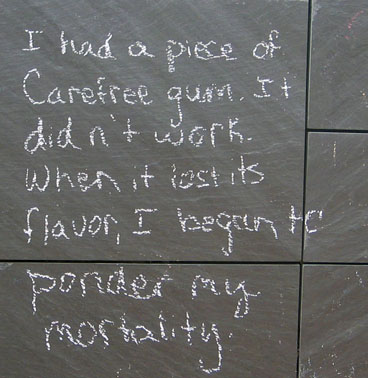 I had a piece of
Carefree gum. It
didn't work.
When it lost its
flavor, I began to
ponder my
mortality.